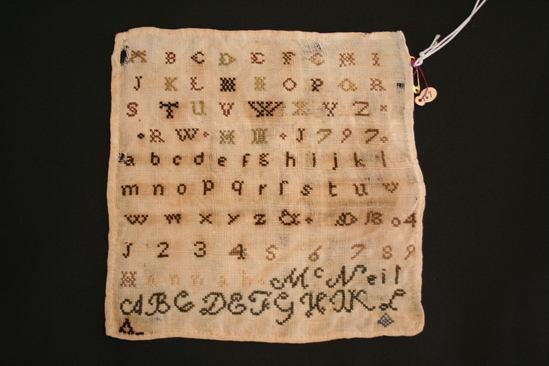 A B C D E F G H I
J K L M N O P Q R
S T U V W X Y Z
R W H J 7 9 7
a b c d e f g h i j k l
m n o p q r ſ s t u v
w x y z &
J 2 3 4 5 6 7 8 9
Hannah McNeil
A B C D E F G H I K L